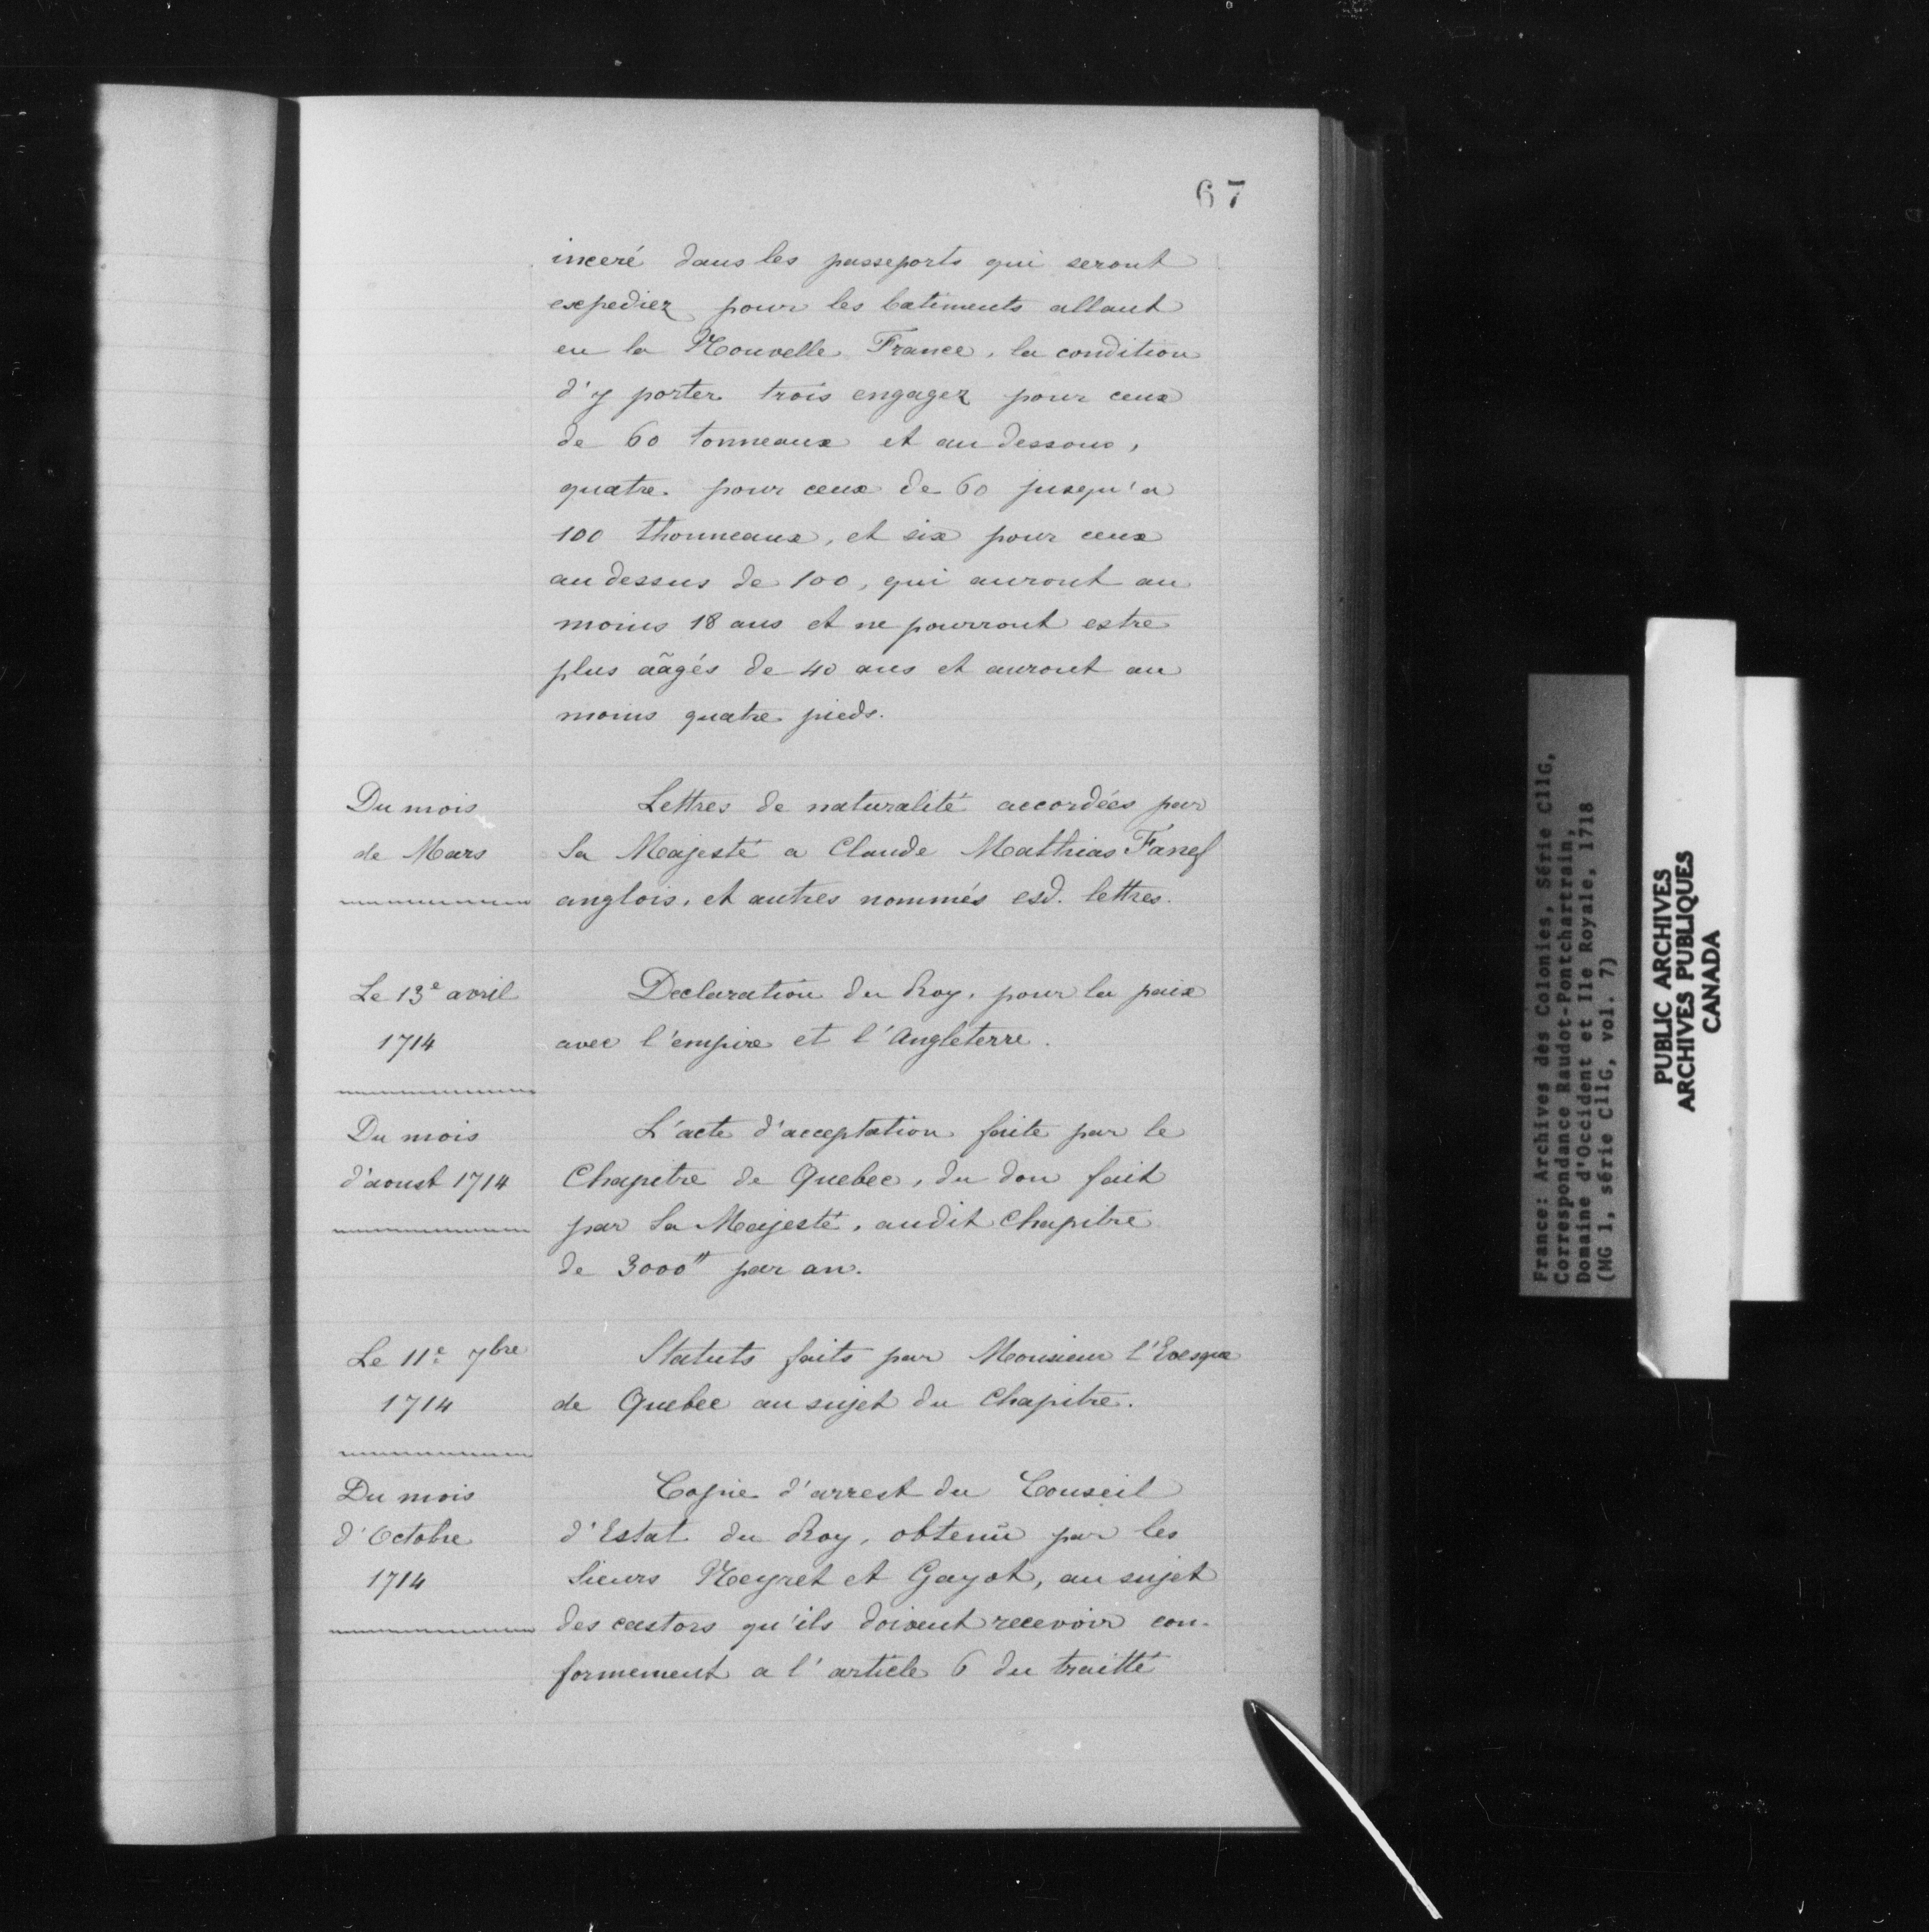 67
inceré dans les passeports qui seront
expediez pour les batiments allant
en la Nouvelle France, la condition
d'y porter trois engagez pour ceux
de 60 tonneaux et au dessous,
quatre pour ceux de 60 jusqu'a
100 thonneaux, et six pour ceux
au dessus de 100, qui auront au
moins 18 ans et ne pourront estre
plus aãgés de 40 ans et auront au
moins quatre pieds.
Du mois
de Mars
Lettres de naturalité accordées par
Sa Majesté a Claude Matthias Fanef
anglois, et autres nommés esd. lettres.
Le 13e avril
1714
Declaration du Roy, pour la paix
avec l'empire et l'Angleterre.
Du mois
d'aoust 1714
L'acte d'acceptation faite par le
Chapitre de Quebec, du don fait
par Sa Majesté, audit Chapitre
de 3000# par an.
Le 11e 7bre
1714
Statuts faits par Monsieur l'Evesque
de Quebec au sujet du Chapitre.
Du mois
d'Octobre
1714
Copie d'arrest du Conseil
d'Estat du Roy, obtenû par les
Sieurs Neyret et Gayot, au sujet
des castors qu'ils doivent recevoir con-
formement a l'article 6 du traitté
France: Archives des Colonies, Série C11G,
Correspondance Raudot-Pontchartrain,
Domaine d'Occident et Ile Royale, 1718
(MG 1, série C11G, vol. 7)
PUBLIC ARCHIVES
ARCHIVES PUBLIQUES
CANADA